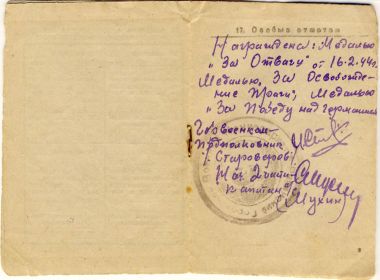 17. Особые отметки
Награждена: Медалью
"За Отвагу" от 16.2.44г.
Медалью, За Освобожде-
ние Праги", Медалью
"За Победу над Германией
Горвоенком
Подполковник
(Староверов)
Нач 2 части
Капитан
(Мухин)